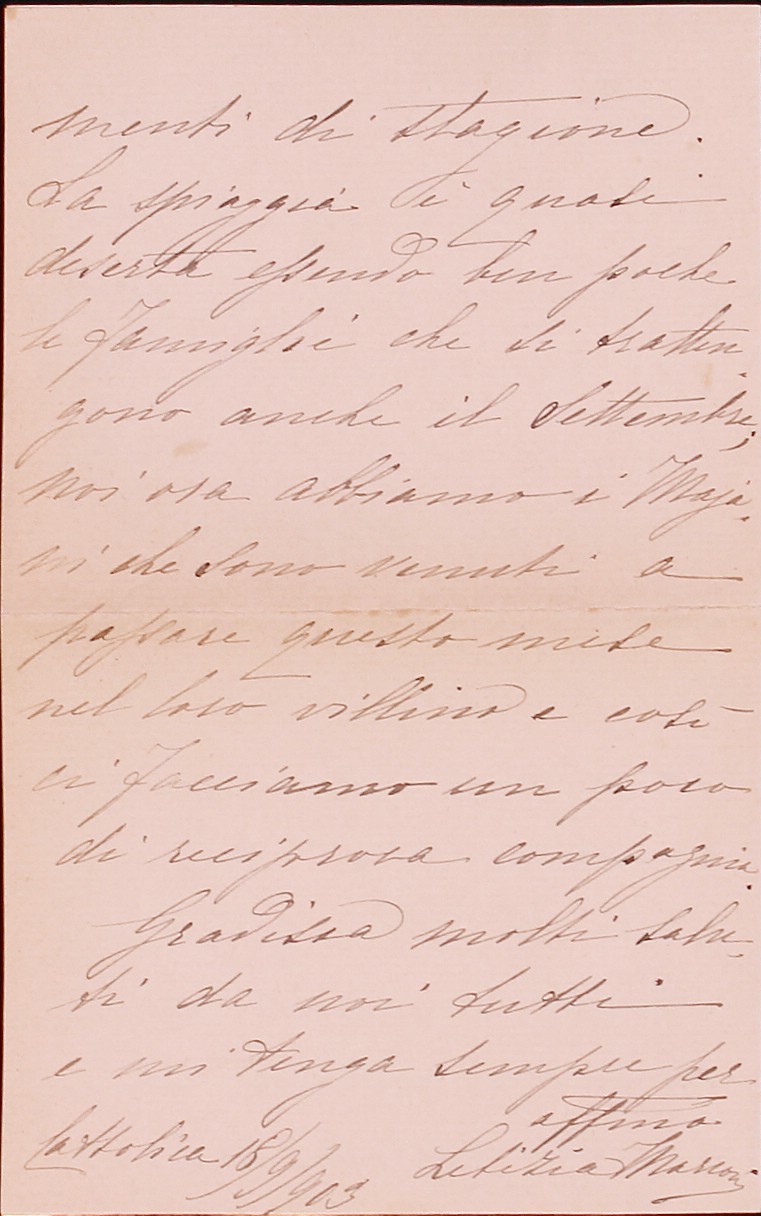 menti di stagione.
La spiaggia è quasi
deserta essendo ben poche
le famiglie che si tratten-
gono anche il Settembre;
noi ora abbiamo i Maja-
ni che sono venuti a
passare questo mese
nel loro villino e così
ci facciamo un poco
di reciproca compagnia.
Gradisca molti salu-
ti da noi tutti
e mi tenga sempre per
affma
Cattolica 18/9/903 Letizia Marconi